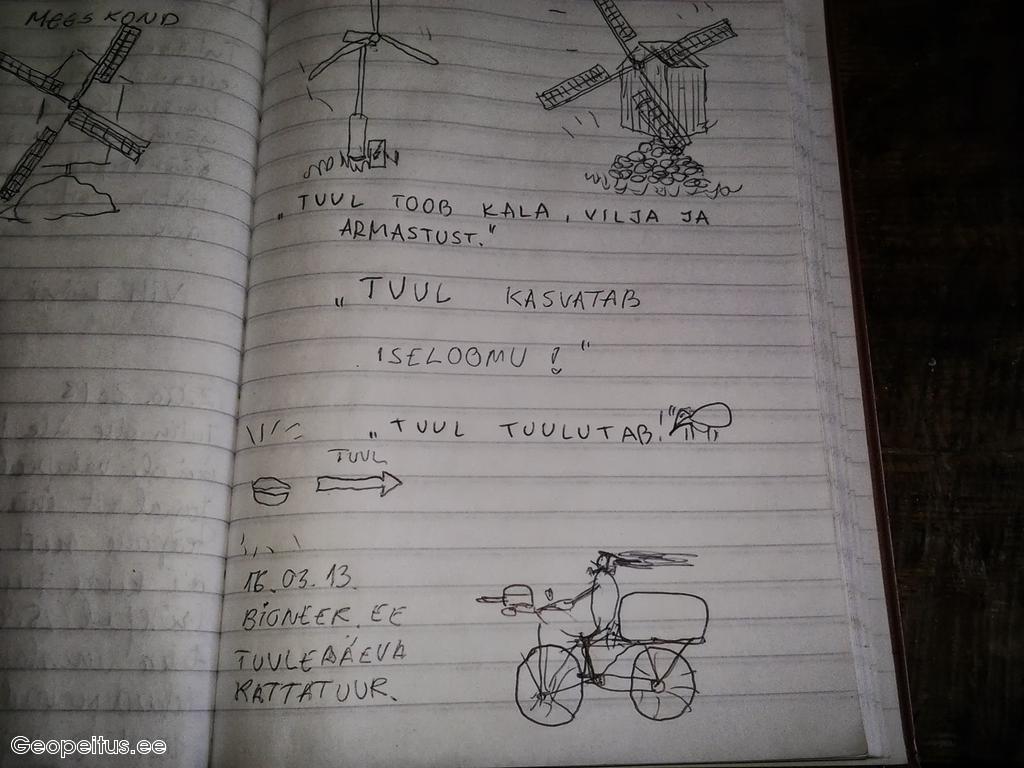 MEESKOND
„TUUL TOOB KALA, VILJA JA
ARMASTUST."
„TUUL KASVATAB
ISELOOMU!"
„TUUL TUULUTAB!"
TUUL
16.03.13.
BIONEER.EE
TUULEPÄEVA
RATTATUUR.
Geopeitus.ee